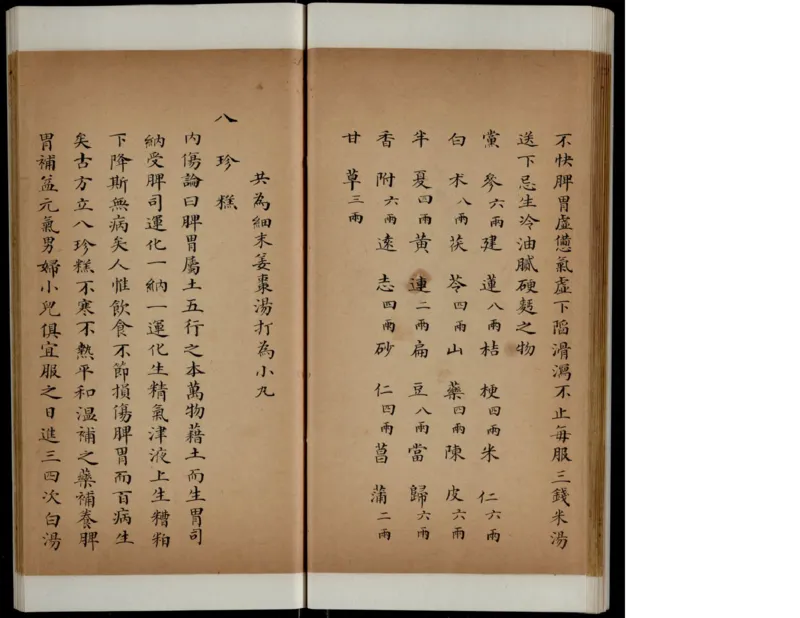 不快脾胃虛憊氣虛下陷滑瀉不止每服三錢米湯
送下忌生冷油膩硬麵之物
黨參六兩建蓮八兩桔梗四兩米仁六兩
白术八兩茯苓四兩山藥四兩陳皮六兩
半夏四兩黃連二兩扁豆八兩當歸六兩
香附六兩遠志四兩砂仁四兩菖蒲二兩
甘草三兩
共為細末姜棗湯打為小丸
八珍糕
內傷論曰脾胃屬土五行之本萬物藉土而生胃司
納受脾司運化一納一運化生精氣津液上生糟粕
下降斯無病矣人惟飲食不節損傷脾胃而百病生
矣古方立八珍糕不寒不熱平和溫補之藥補養脾
胃補益元氣男婦小兒俱宜服之日進三四次白湯